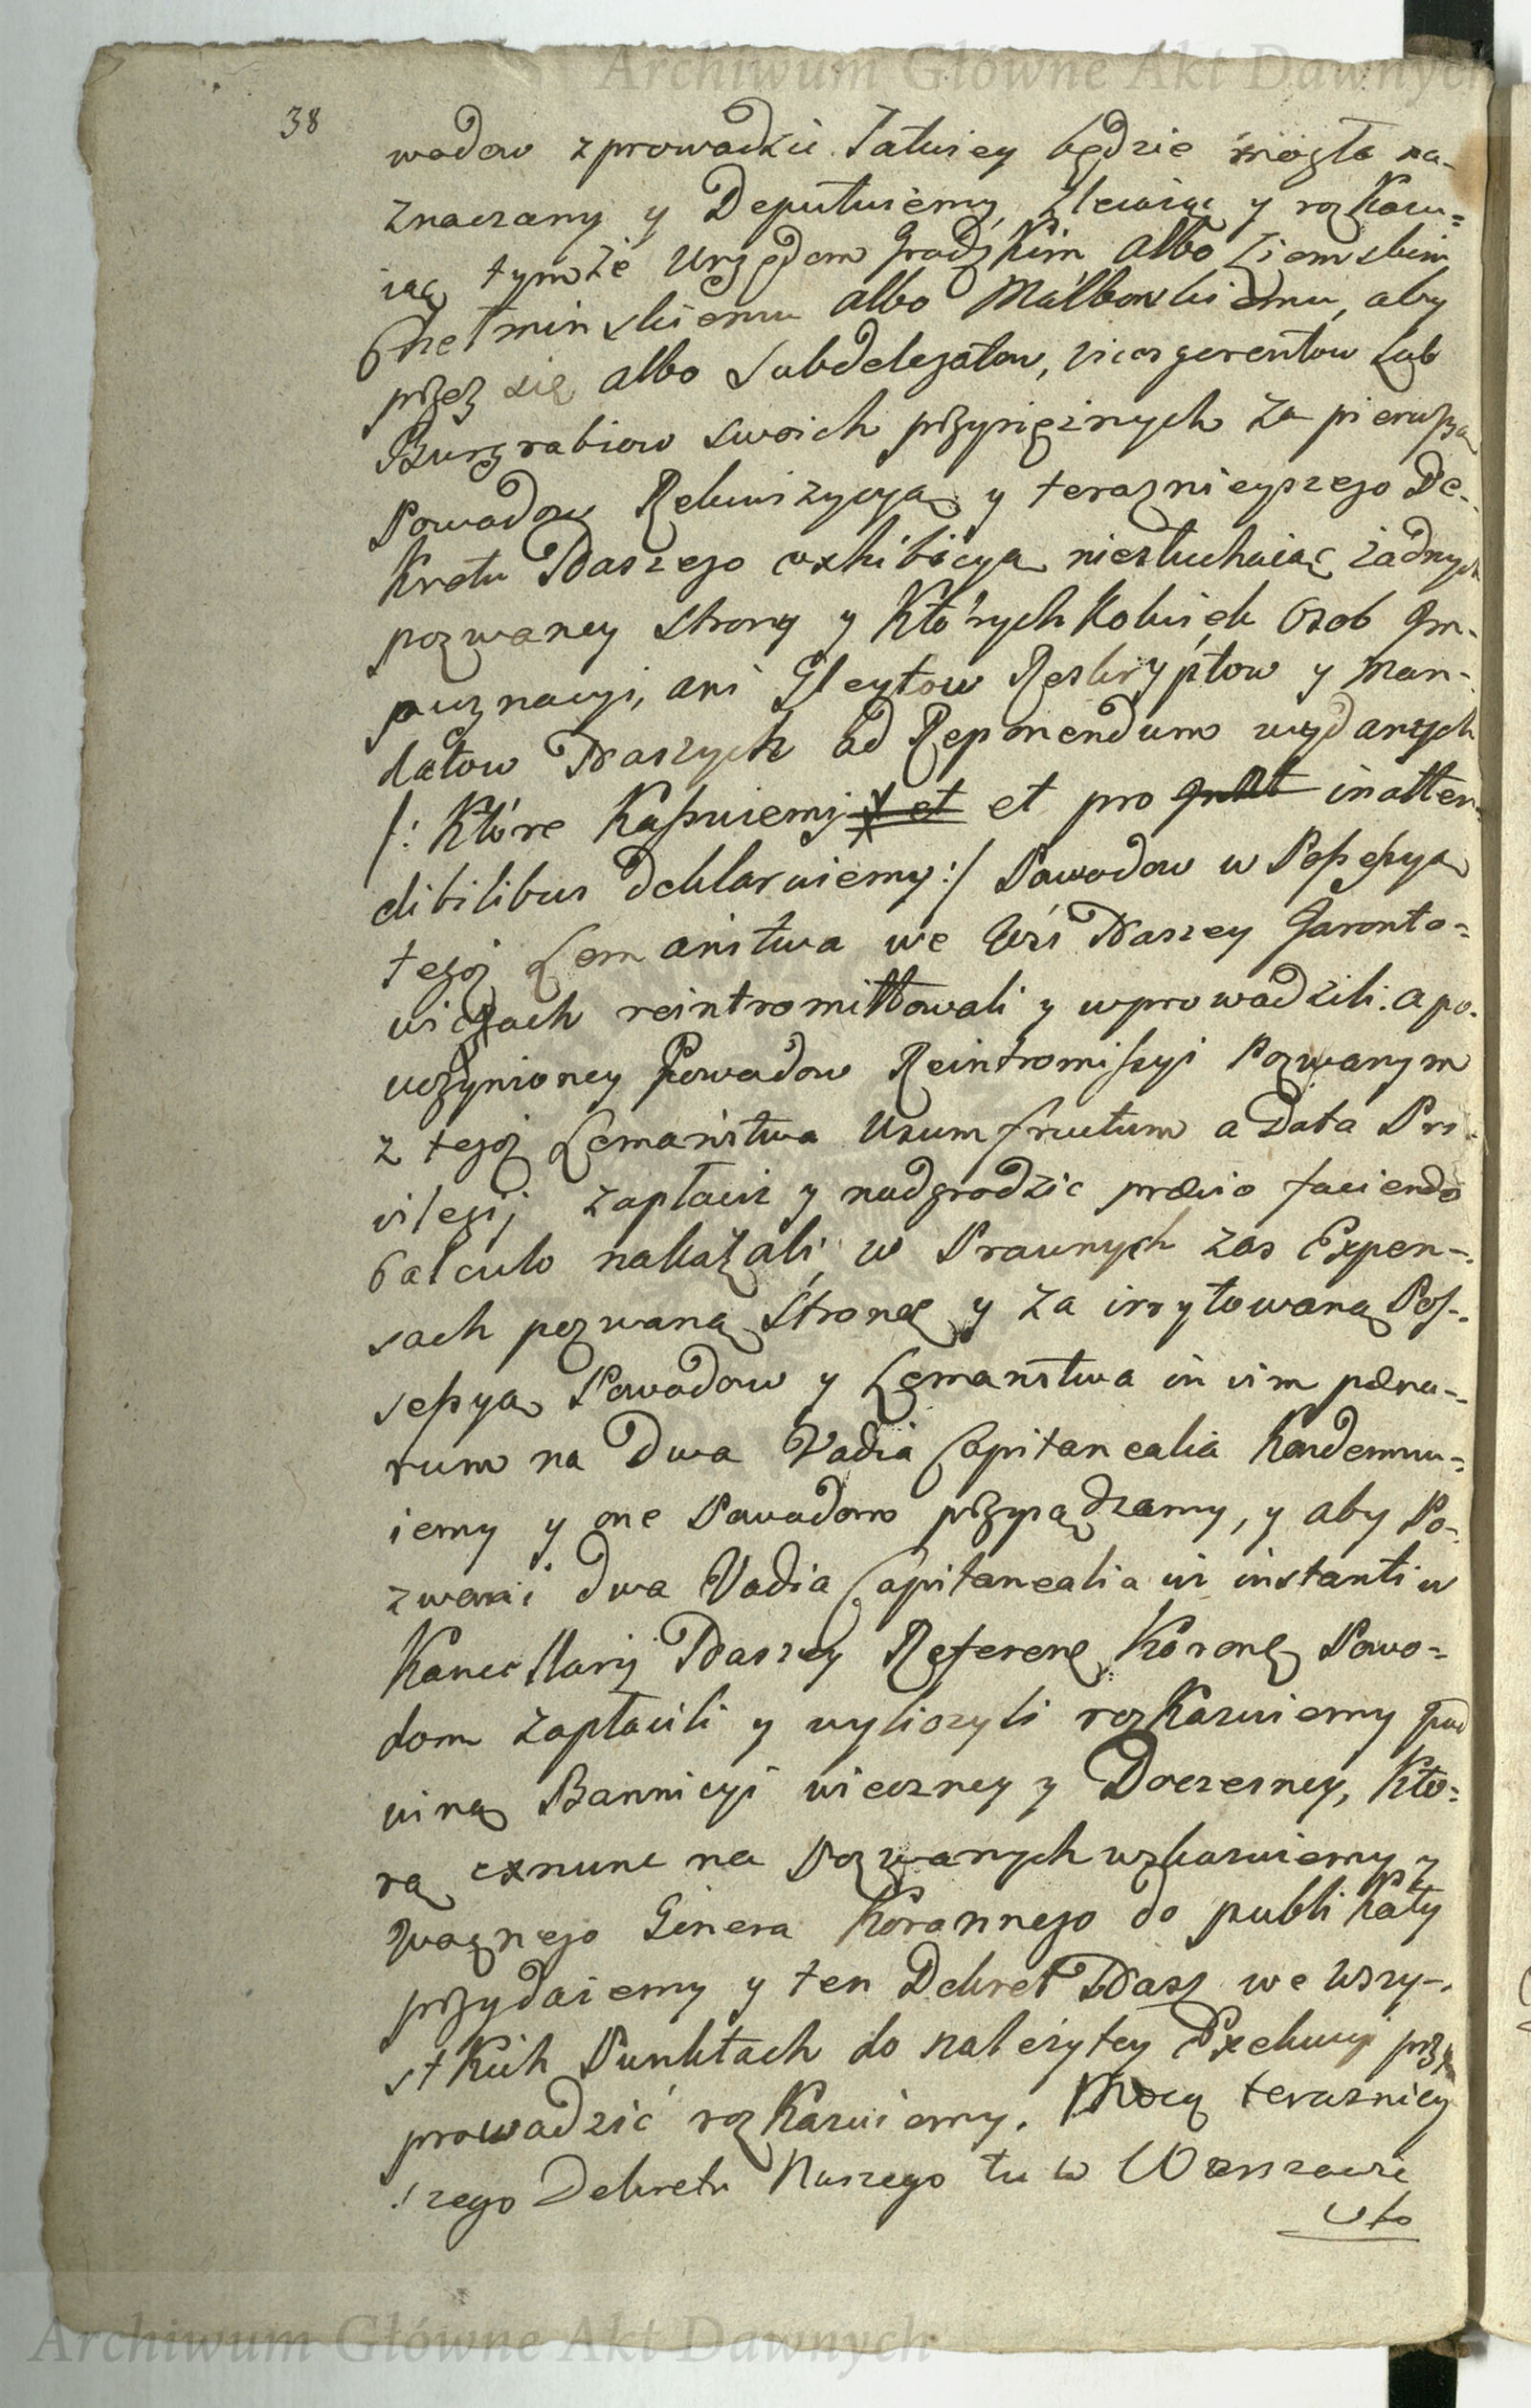 Archiwum Główne Akt Dawnych
38
wodow zprowadzić łatwiey będzie mogło na-
znaczamy y Deputuiemy, zlewiąc y rozkazu=
iąc tymże Urzędom Grodzkim albo Ziemskim
Chełminskiemu albo Malborskiemu, aby
przez się albo Subdelegatow, vicesgerentow lub
Burgrabiow swoich przysięznych za pierwszą
Powadow Rekwizycyą y teraznieyszego De-
kretu Naszego exhibicyą niesłuchaiąc żadnych
pozwaney strony y Którychkolwiek Osob Im-
pugnacyi, ani Gleytow Reskryptow y Man-
datow Naszych ad Reponendum wydanych
/: Które Kassuiemy et pro inatten-
dibilibus deklaruiemy :/ Powodow w Possessyą
tegoż Lemaństwa we Wsi Naszey Garonto=
wiczach reintromittowali y wprowadzili. a po-
uczynioney Powodow Reintromissyi Pozwanym
z tegoż Lemaństwa Usumfructum a Data Pri-
vilegij zapłacić y nadgrodzić prævio faciendo
Calculo nakazali, w Prawnych zas Expen-
sach pozwaną Stronę y za irrytowaną Pos-
sessyą Powodow y Lemaństwa in vim pœna-
rum na Dwa Vadia Capitanealia kondemnu=
iemy y one Powodom przysądzamy, y aby Po-
zwani dwa Vadia Capitanealia in instanti w
Kancellarij Naszey Referenę Koronę Powo=
dom zapłacili y wyliczyli rozkazuiemy pod
winą Bannicyi wieczney y Doczesney, Kto=
rą exnunc na Pozwanych wskazuiemy y
Woznego Genera Koronnego do publikaty
przydaiemy y ten Dekret Nasz we Wszy-
stkich Punktach do należytey Exekucyi przy
prowadzić rozkazuiemy. Mocą terazniey
szego Dekretu Naszego tu w Warszawie
Archiwum Główne Akt Dawnych